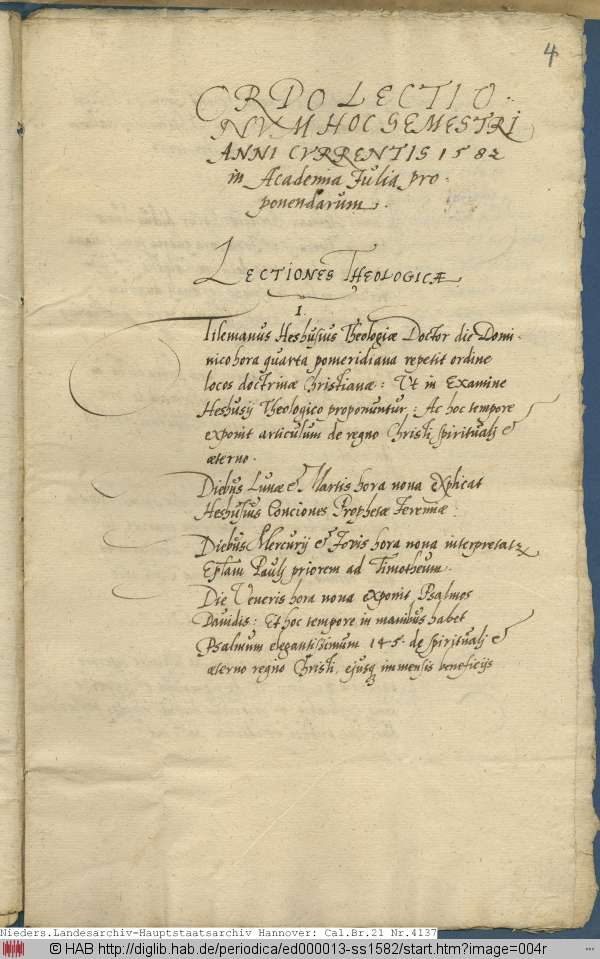 4
ORDO LECTIO
NVM HOC SEMESTRI
ANNI CVRRENTIS 1582
in Academia Julia pro-
ponendarum.
LECTIONES THEOLOGICÆ
1.
Tilemanus Heshusius Theologiæ Doctor die Domi-
nico hora quarta pomeridiana repetit ordine
locos doctrinæ Christianæ: Vt in Examine
Heshusij Theologico proponuntur: Ac hoc tempore
exponit articulum de regno Christi spirituali &
æterno.
Diebus Lunæ & Martis hora nona explicat
Heshusius Conciones Prophetæ Jeremiæ.
Diebus Mercurij & Jovis hora nona interpretat
Eplam Pauli priorem ad Timotheum.
Die Veneris hora nona exponit Psalmos
Dauidis: Et hoc tempore in manibus habet
Psalmum elegantissimum 145. de spirituali &
æterno regno Christi, ejusq immensis beneficijs
Nieders.Landesarchiv-Hauptstaatsarchiv Hannover: Cal.Br.21 Nr.4137
© HAB http://diglib.hab.de/periodica/ed000013-ss1582/start.htm?image=004r